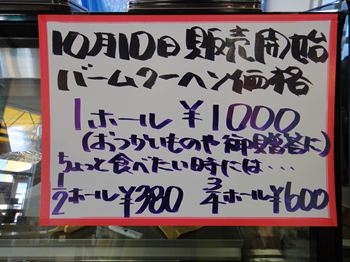 10月10日 販売開始
バームクーヘン価格
1ホール ¥1000
(おつかいものや御贈答に)
ちょっと食べたい時には・・・
1/2ホール¥380 3/4ホール¥600